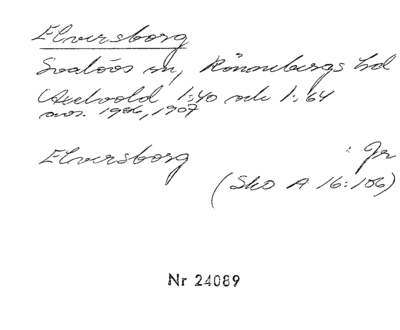 Elversborg
Svalövs sn, Rönnebergs hd
Axelvold 1:40 och 1:64
avs. 1906, 1907
Elversborg : Jr
(Sko A 16:106)
Nr 24089